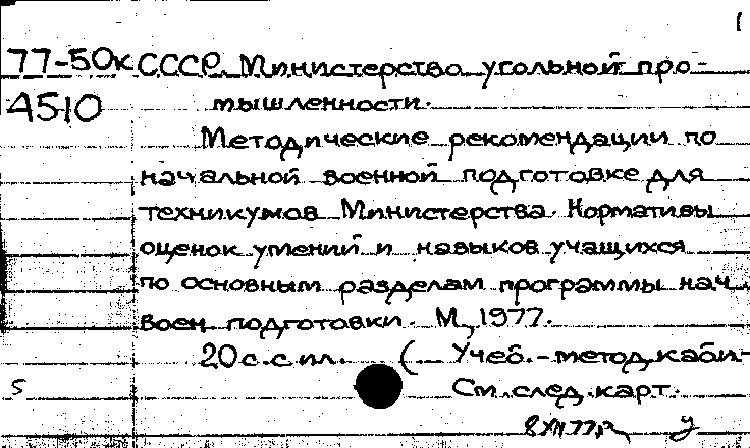 1
77-50к СССР. Министерство угольной про-
4510 мышленности.
Методические рекомендации по
начальной военной подготовке для
техникумов Министерства. Нормативы
оценок умений и навыков учащихся
по основным разделам программы нач.
воен. подготовки. М., 1977.
20 с. с ил. ( Учеб.-метод. каби-
5 См. след. карт.
8 XII 77 у